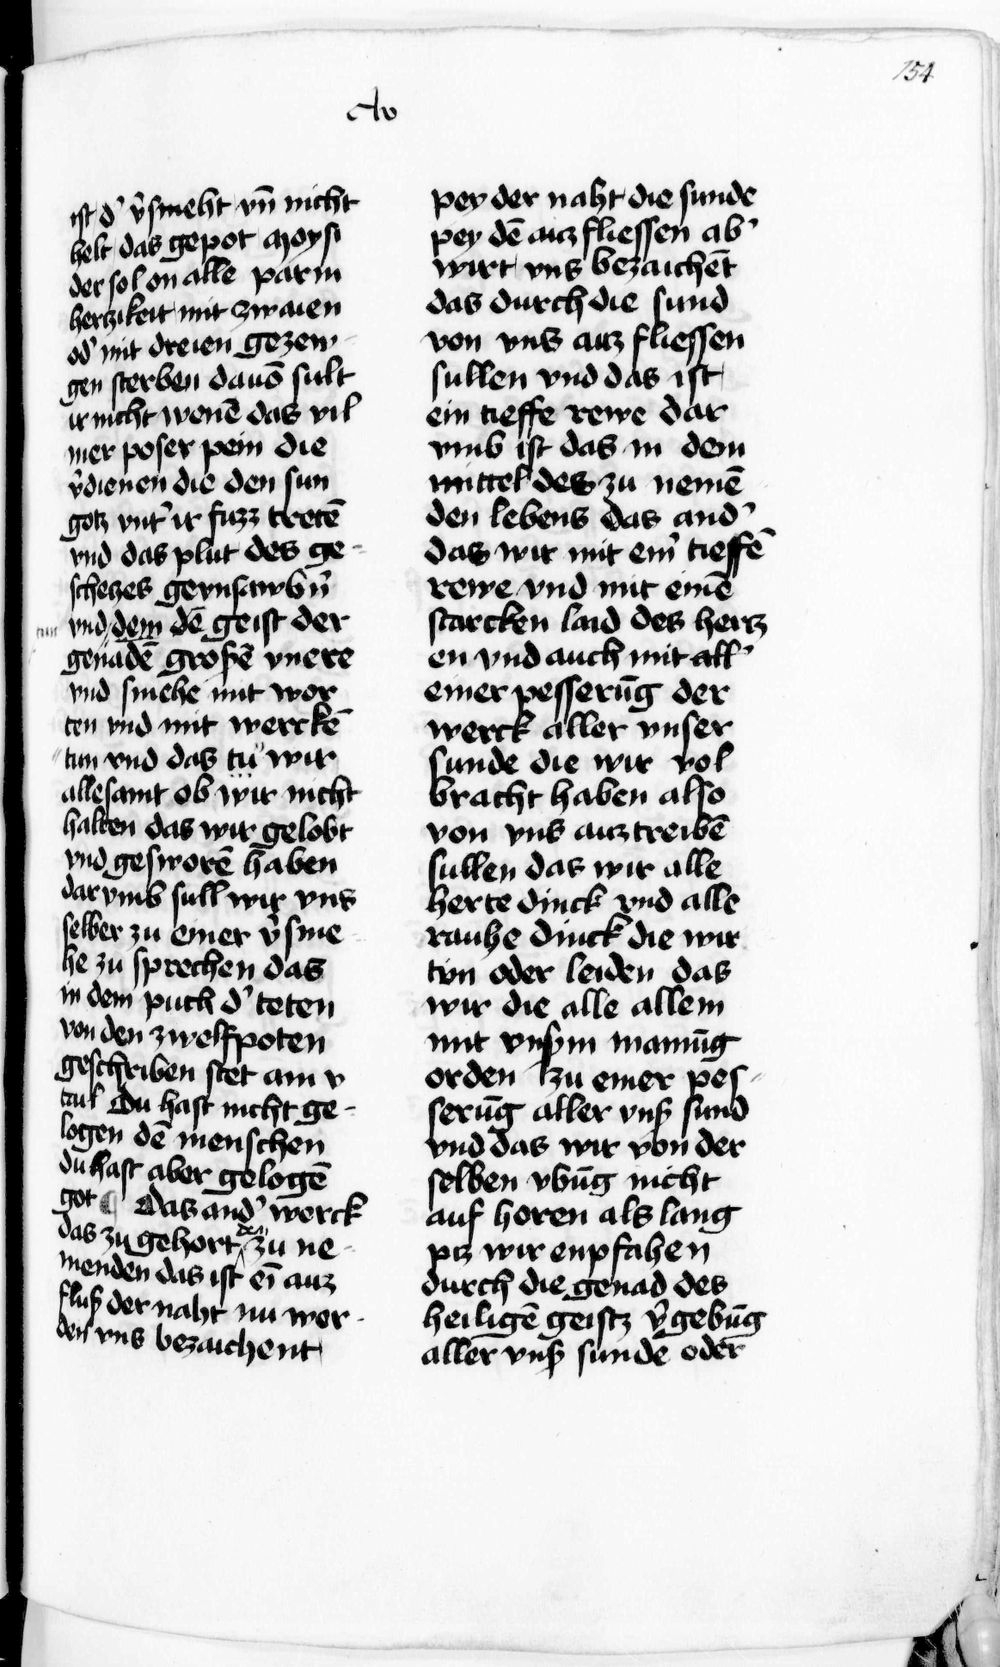 154
Av
ist d' v̾smeht vn̄ nicht
helt das gepot Moysi
der sol on alle parm
herzikeit mit zwaien
od' mit dreien gezew
gen sterben dauō sult
ir nicht wenē das vil
mer poser pein die
v̾dienen die den sun
gotz vnt' ir fuzz tretē
vnd das plut des ge-
schetzes
vnd dem dē geist der
genadē groſſē vnere
vnd smehe mit wor
ten vnd mit werckē
tun vnd das tu wir
allesamt ob wir nicht
halten das wir gelobt
vnd gesworē haben
dar vmb sull wir vns
selber zu einer v̾sme
he zu sprechen das
in dem puch d' teten
von den zwelfpoten
geschriben stet am v
tail Du hast nicht ge-
logen dē menschen
du hast aber gelogē
got ¶ Das and' werck
das zu gehort den zu ne-
menden das ist eī auz
fluſß der naht nu wer-
den vns bezaichent
pey der naht die sunde
pey dē auz fliessen ab'
wirt vns bezaichēt
das durch die sund
von vns auz fliessen
sullen vnd das ist
ein tieffe rewe dar
vmb ist das in dem
mittel des zu nemē
den lebens das and'
das wir mit em̄ tieffē
rewe vnd mit einē
starcken laid des hertz
en vnd auch mit all'
einer pesserūg der
werck aller vnser
sunde die wir vol
bracht haben also
von vns auz treibē
sullen das wir alle
herte dinck vnd alle
rauhe dinck die wir
tun oder leiden das
wir die alle allein
mit vnsm mainūg
orden zu einer pes-
serūg aller vnß sund
vnd das wir von der
selben vbūg nicht
auf horen als lang
piz wir enpfahen
durch die genad des
heiligē geistz v̾gebūg
aller vnß sunde oder